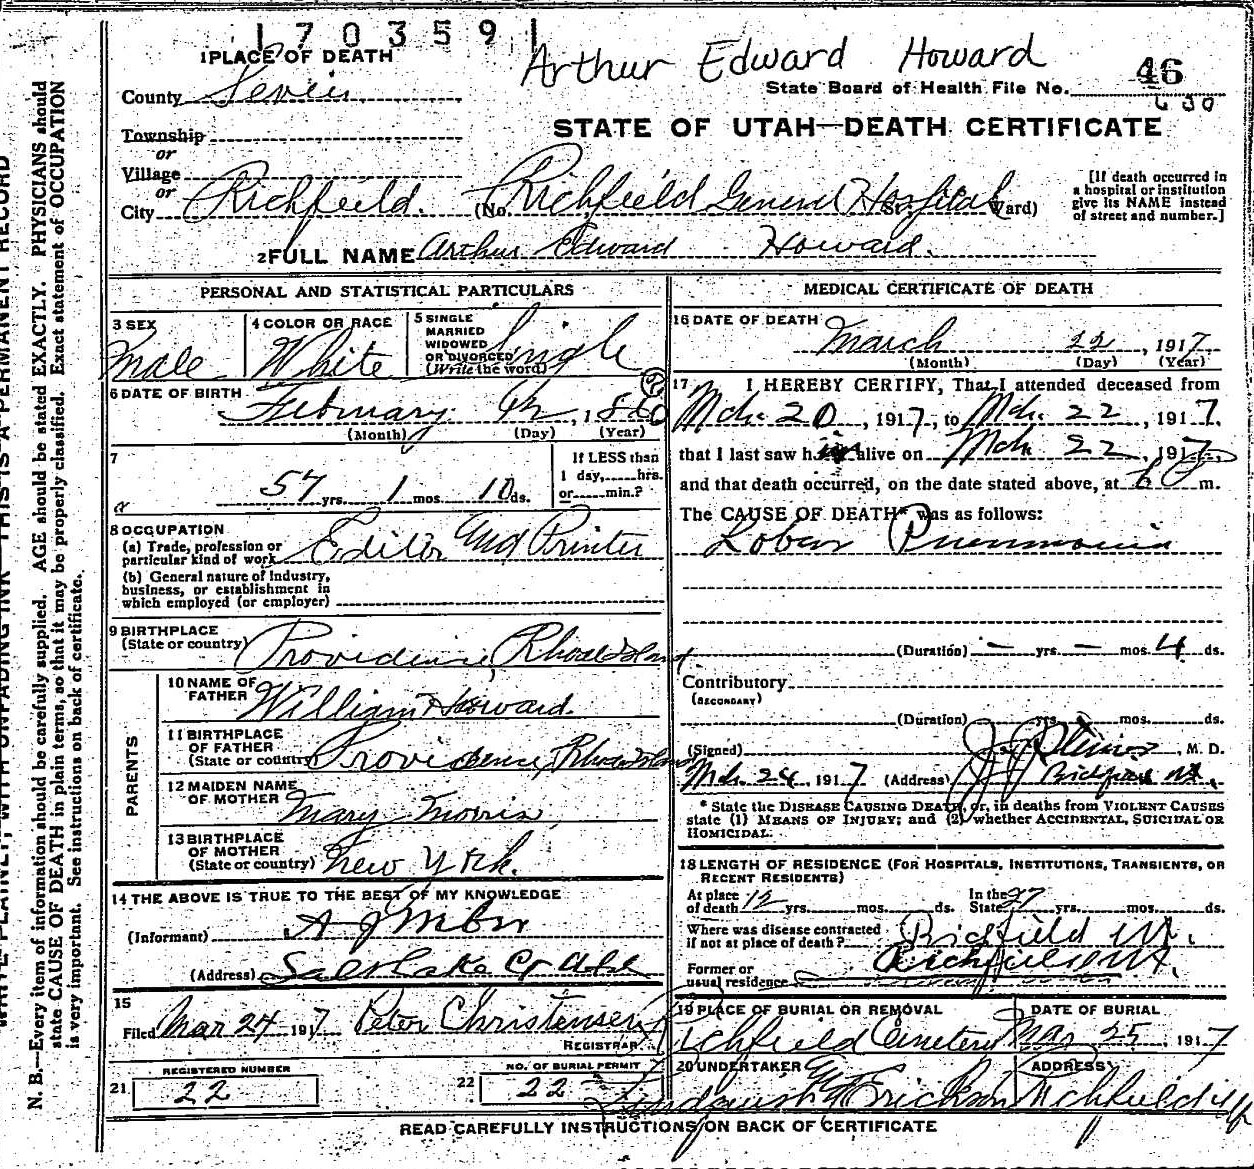 1703591
1 PLACE OF DEATH
Arthur Edward Howard
46
County Sevier
State Board of Health File No.
630
Township
STATE OF UTAH—DEATH CERTIFICATE
or
Village
or
City Richfield. (No. Richfield General Hospital St. Ward)
[If death occurred in
a hospital or institution
give its NAME instead
of street and number.]
2 FULL NAME Arthur Edward Howard.
PERSONAL AND STATISTICAL PARTICULARS
3 SEX
Male
4 COLOR OR RACE
White
5 SINGLE
MARRIED
WIDOWED
OR DIVORCED
(Write the word)
Single
6 DATE OF BIRTH
February
(Month) (Day) (Year)
7
57 yrs. 1 mos. 10 ds.
If LESS than
1 day, hrs.
or min.?
8 OCCUPATION
(a) Trade, profession or
particular kind of work Editor and Printer
(b) General nature of Industry,
business, or establishment in
which employed (or employer)
9 BIRTHPLACE
(State or country) Providence, Rhode Island.
PARENTS
10 NAME OF
FATHER William Howard.
11 BIRTHPLACE
OF FATHER
(State or country) Providence, Rhode Island
12 MAIDEN NAME
OF MOTHER Mary Morris
13 BIRTHPLACE
OF MOTHER
(State or country) New York.
14 THE ABOVE IS TRUE TO THE BEST OF MY KNOWLEDGE
(Informant)
(Address) Salt Lake
15
Filed Mar 24 1917 Peter Christensen
REGISTRAR
REGISTERED NUMBER
21 22
NO. OF BURIAL PERMIT
22 22
MEDICAL CERTIFICATE OF DEATH
16 DATE OF DEATH
March 22, 1917
(Month) (Day) (Year)
17 I HEREBY CERTIFY, That I attended deceased from
Mch. 20, 1917, to Mch. 22, 1917,
that I last saw him alive on Mch 22, 1917,
and that death occurred, on the date stated above, at 6 P m.
The CAUSE OF DEATH* was as follows:
Lobar Pneumonia
(Duration) — yrs. — mos. 4 ds.
Contributory
(SECONDARY)
(Duration) yrs. mos. ds.
(Signed) M. D.
Mch. 24, 1917 (Address) Richfield Ut.
* State the DISEASE CAUSING DEATH, or, in deaths from VIOLENT CAUSES
state (1) MEANS OF INJURY; and (2) whether ACCIDENTAL, SUICIDAL OR
HOMICIDAL.
18 LENGTH OF RESIDENCE (FOR HOSPITALS, INSTITUTIONS, TRANSIENTS, OR
RECENT RESIDENTS)
At place
of death 12 yrs. mos. ds. In the
State 27 yrs. mos. ds.
Where was disease contracted
if not at place of death? Richfield Ut.
Former or
usual residence Richfield Ut.
19 PLACE OF BURIAL OR REMOVAL
Richfield Cemetery
DATE OF BURIAL
Mar. 25, 1917
20 UNDERTAKER
Erickson
ADDRESS
Richfield
READ CAREFULLY INSTRUCTIONS ON BACK OF CERTIFICATE
WRITE PLAINLY, WITH UNFADING INK—THIS IS A PERMANENT RECORD
N. B.—Every item of information should be carefully supplied. AGE should be stated EXACTLY. PHYSICIANS should
state CAUSE OF DEATH in plain terms, so that it may be properly classified. Exact statement of OCCUPATION
is very important. See instructions on back of certificate.